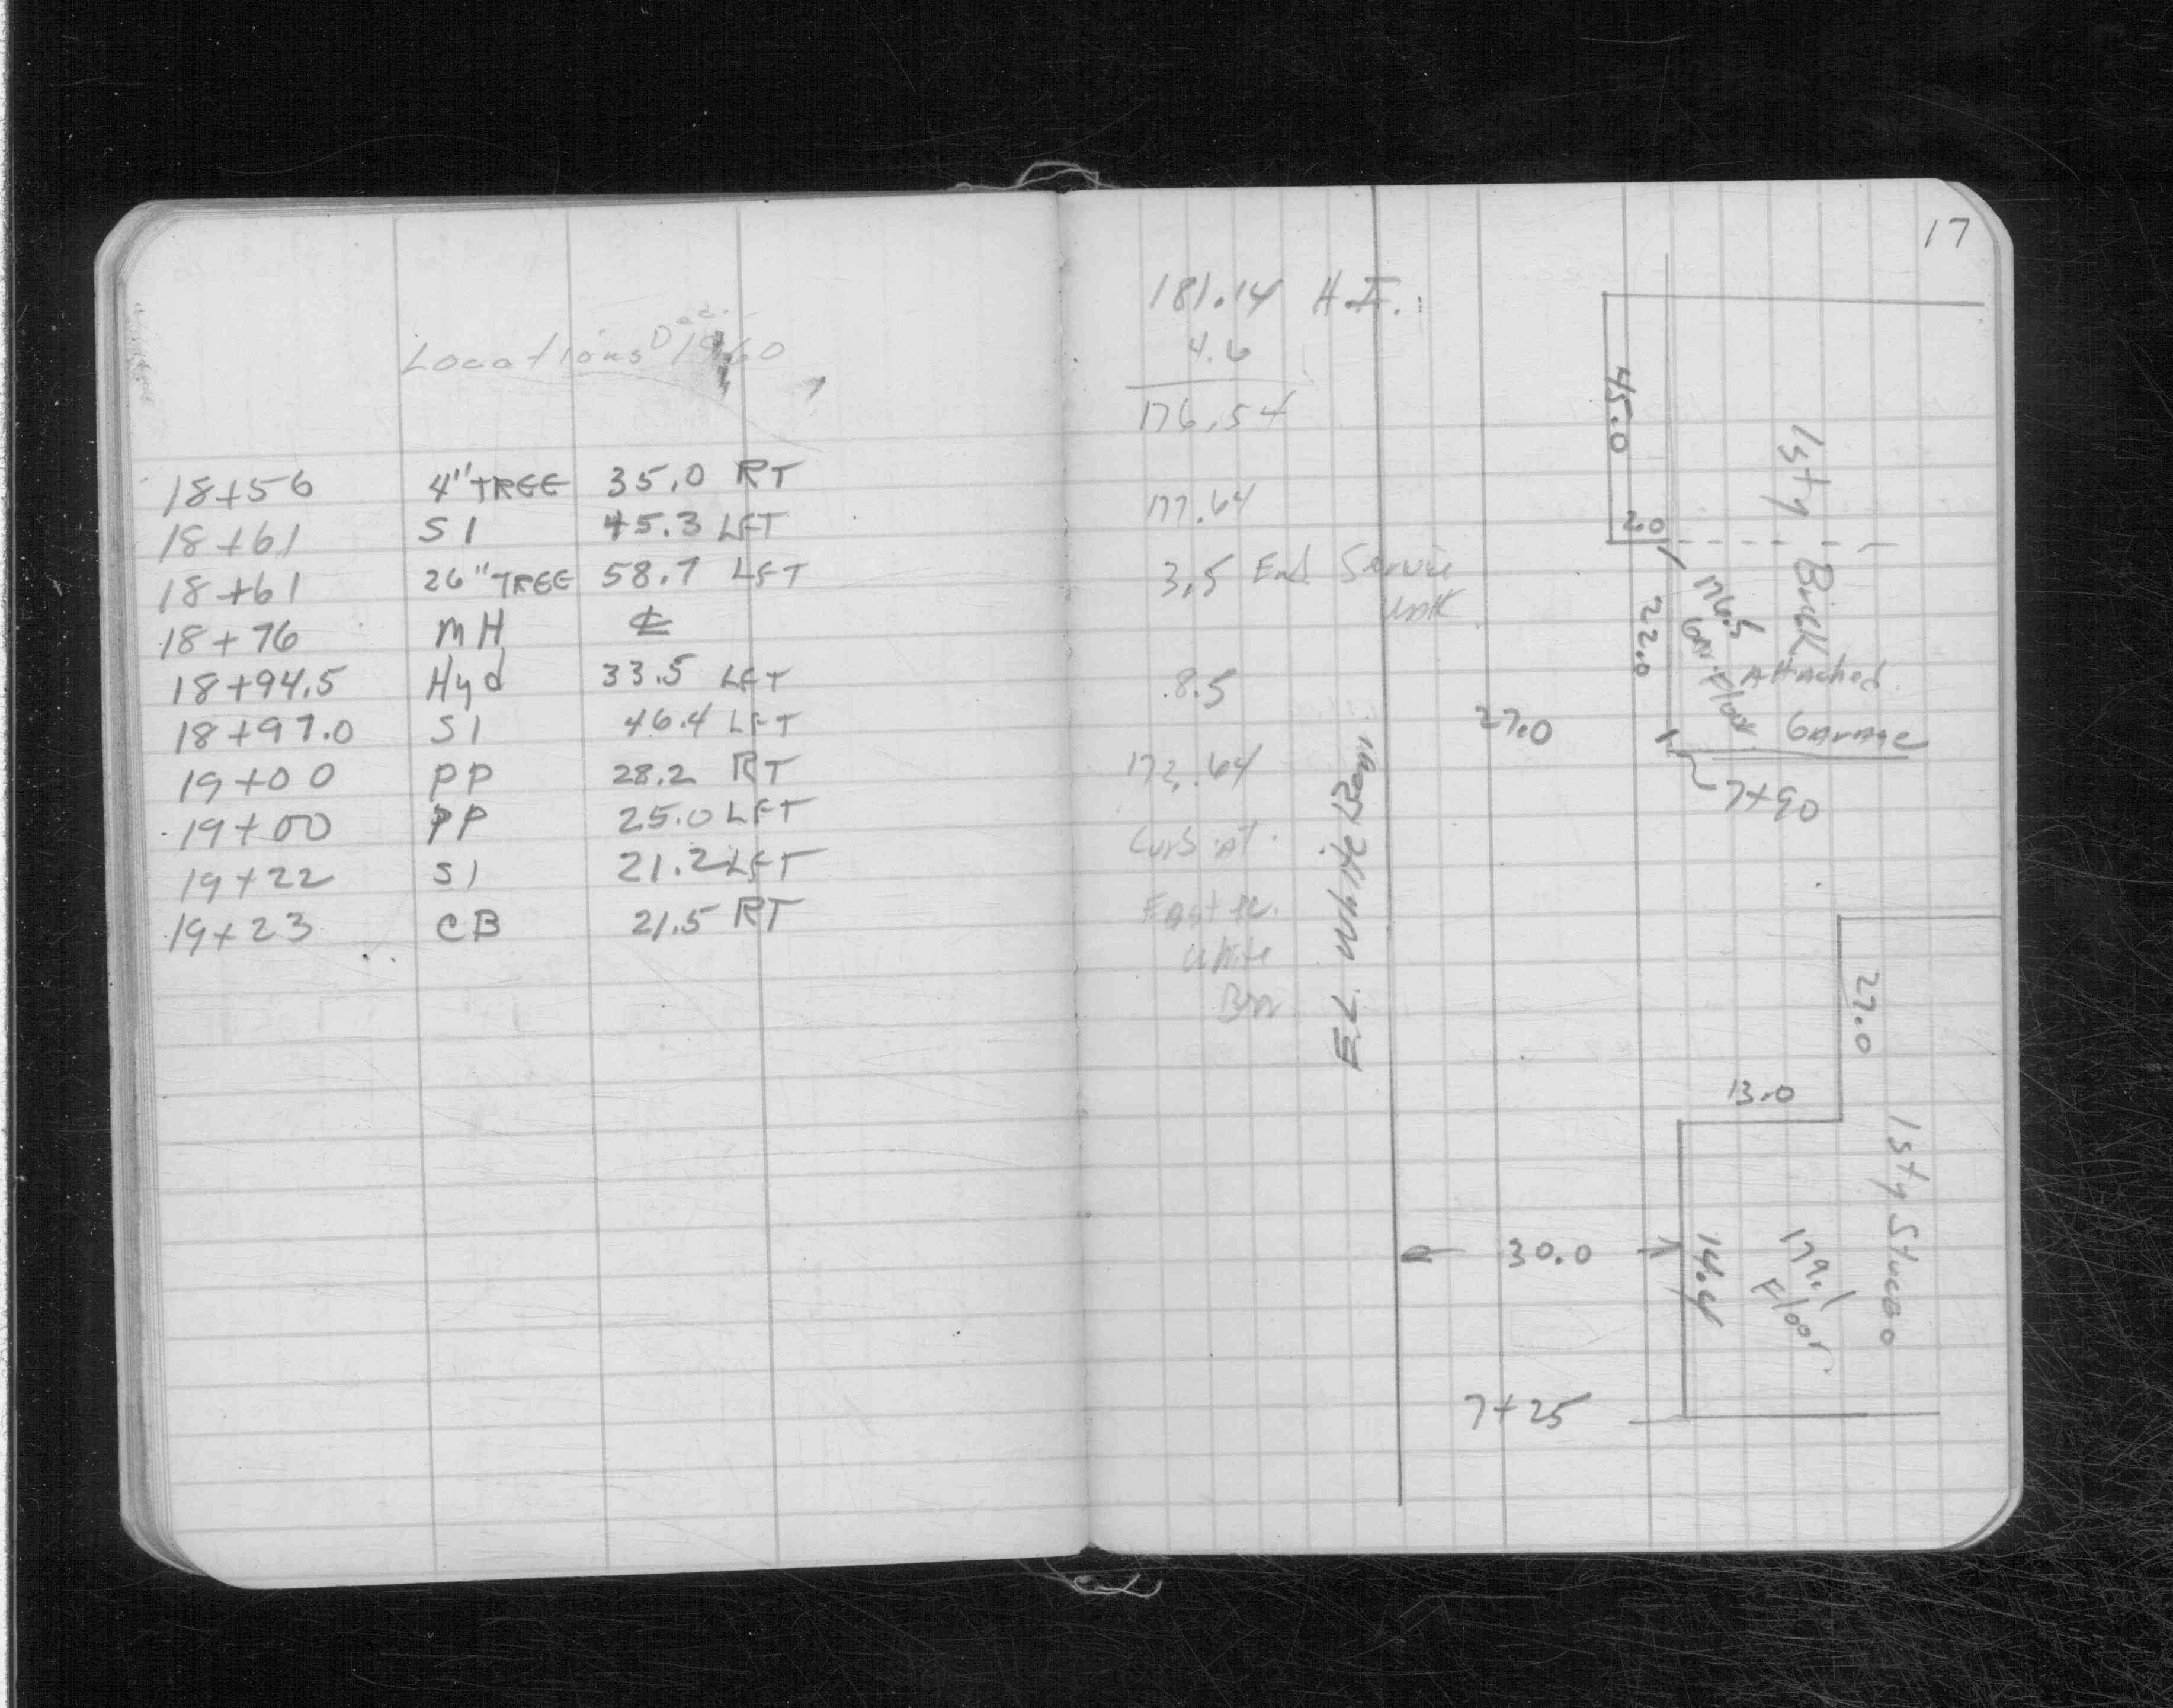 Locations Dec. 1960
18+56 4" TREE 35.0 RT
18+61 S1 45.3 LFT
18+61 26" TREE 58.7 LFT
18+76 MH ℄
18+94.5 Hyd 33.5 LFT
18+97.0 S1 46.4 LFT
19+00 PP 28.2 RT
19+00 PP 25.0 LFT
19+22 S1 21.2 LFT
19+23 CB 21.5 RT
17
181.14 H.I.
4.6
176.54
177.64
3.5 End Service
Walk
8.5
172.64
Curb at
East
White
45.0
2.0
1 sty Brick
22.0
176.5
Floor
Attached
Garage
27.0
7+90
27.0
13.0
1 sty Stucco
30.0
14.4
179.1
Floor
7+25